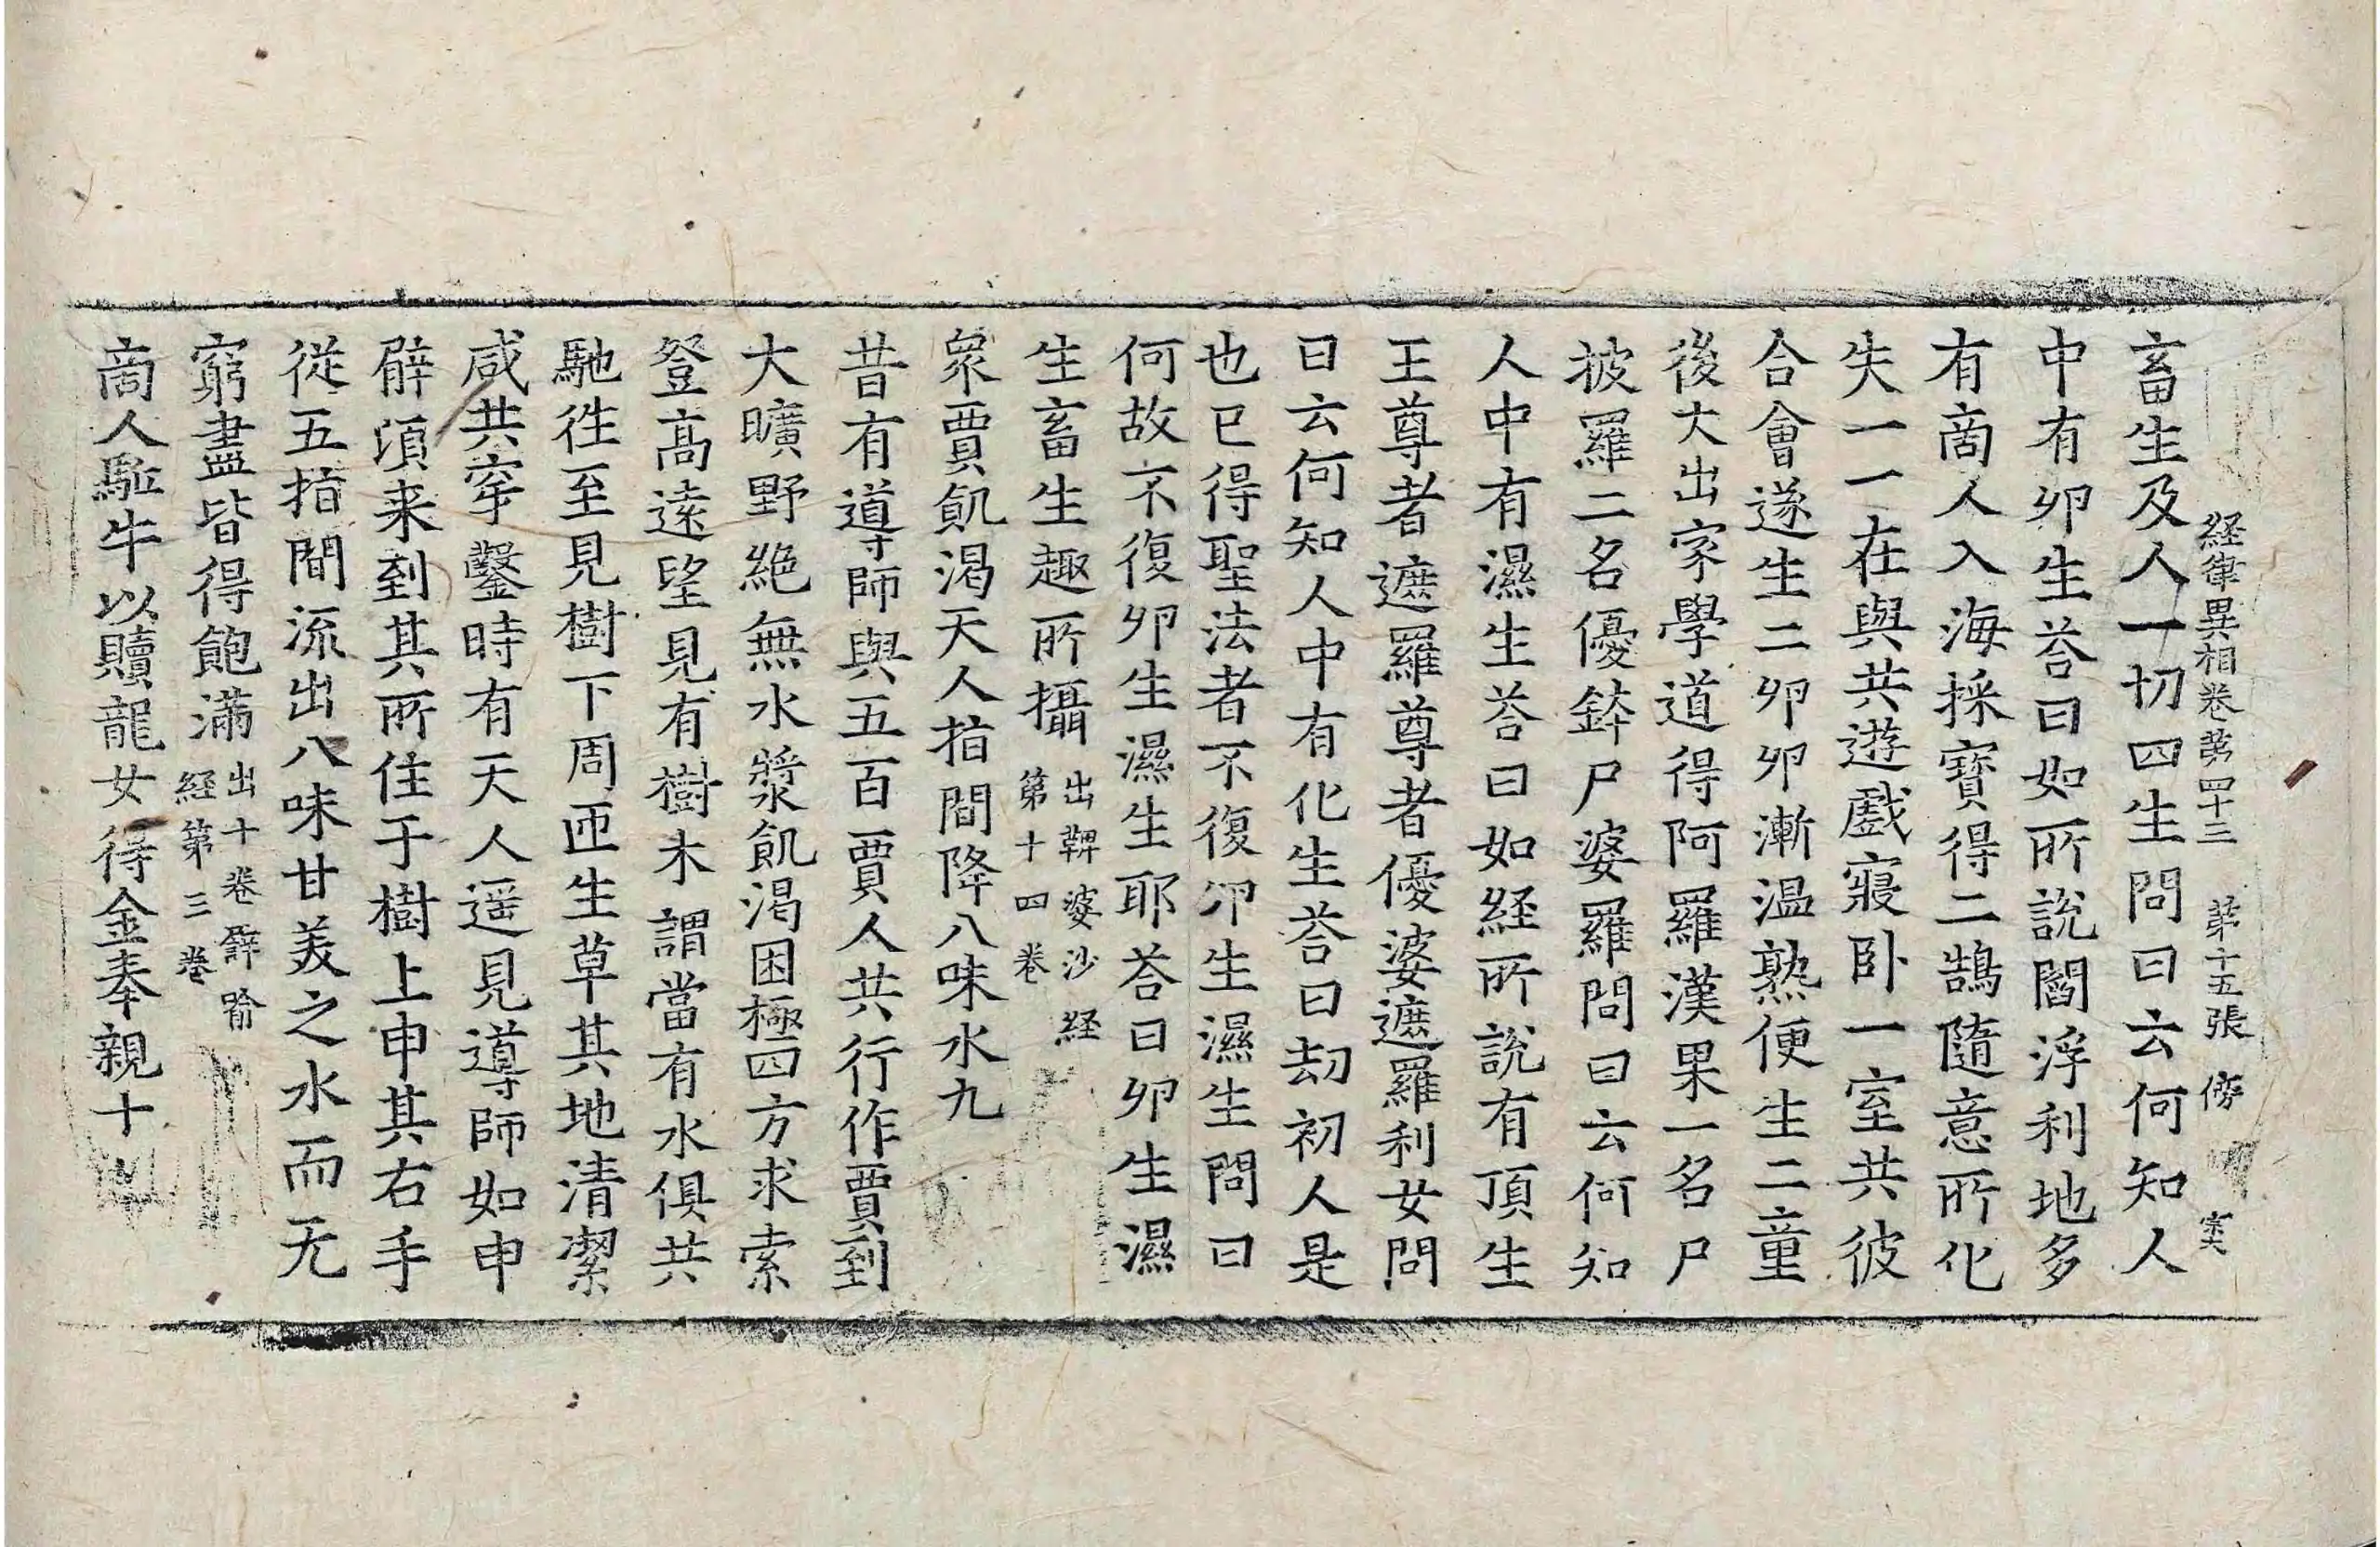 経律異相卷第四十三 第十五張 傍
畜生及人一切四生問曰云何知人
中有卵生荅曰如所說閻浮利地多
有啇人入海採寳得二鵠隨意所化
失一一在與共遊戲寢卧一室共彼
合會遂生二卵卵漸温熟便生二童
後大出家學道得阿羅漢果一名尸
披羅二名優鉢尸婆羅問曰云何知
人中有濕生荅曰如経所說有頂生
王尊者遮羅尊者優婆遮羅利女問
曰云何知人中有化生荅曰劫初人是
也已得聖法者不復卵生濕生問曰
何故不復卵生濕生耶荅曰卵生濕
生畜生趣所攝 出鞞婆沙経
第十四卷
衆賈飢渴天人指間降八味水九
昔有導師與五百賈人共行作賈到
大曠野絶無水漿飢渴困極四方求索
登高遠望見有樹木謂當有水俱共
馳徃至見樹下周迊生草其地清潔
咸共穿鑿時有天人遥見導師如申
臂湏来到其所住于樹上申其右手
從五指間流出八味甘美之水而无
窮盡皆得飽滿 出十卷譬喻
経第三卷
啇人駈牛以贖龍女得金奉親十